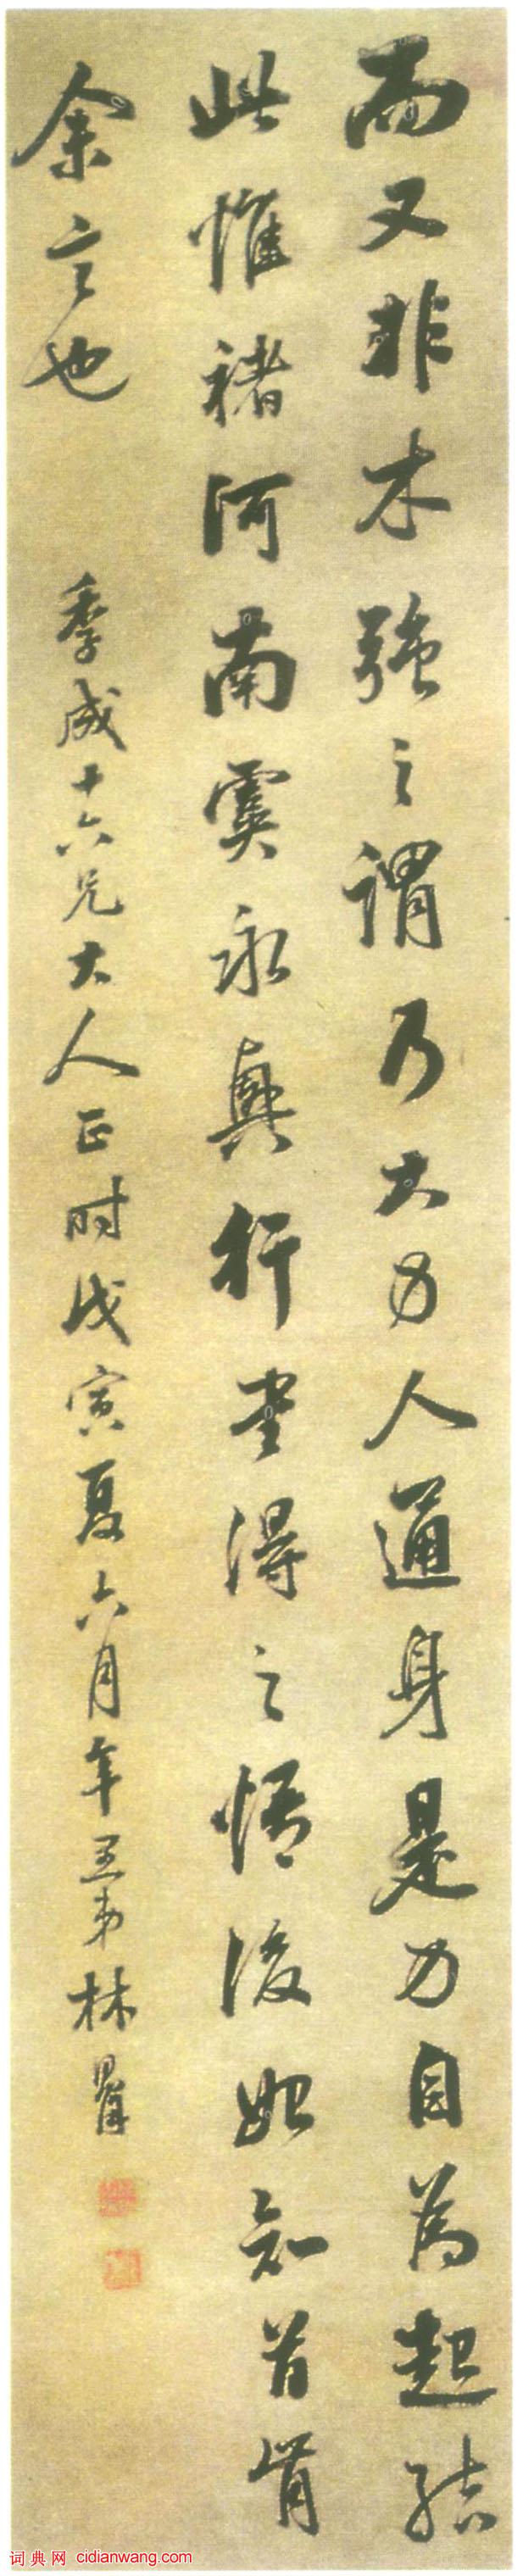 而又非木強之謂乃大力人通身是力自為起結
此惟褚河南虞永興行書得之悟後始知首肯
余言也 季成十六兄大人正時戊寅夏六月年弟林
词典网 cidianwang.com